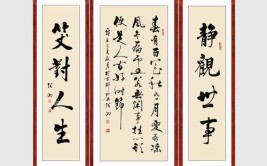 靜觀世事
春有百花秋有月夏有涼
風冬有雪若無閑事挂心頭
便是人間好時節
笑對人生